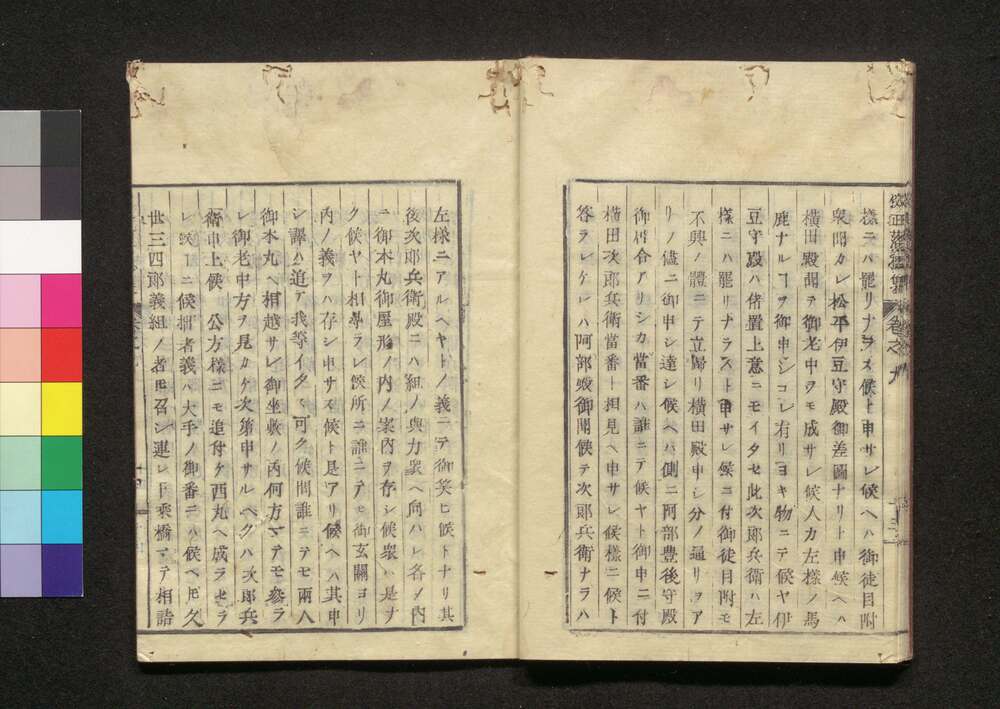 校正落穂集 巻之九
様ニハ罷リナラス候ト申サレ候ヘハ御徒目附
衆聞カレ松平伊豆守殿御差圖ナリト申候ヘハ
横田殿聞ヲ御老中ヲモ成サレ候人カ左様ノ馬
鹿ナルヿヲ御申シコレ有リヨキ物ニテ候ヤ伊
豆守殿ハ偖置上意ニモイタセ此次郎兵衛ハ左
様ニハ罷リナラスト申サレ候ニ付御徒目附モ
不興ノ體ニテ立歸リ横田殿申シ分ノ通リヲア
リノ儘ニ御申シ達シ候ヘハ側ニ阿部豊後守殿
御居合アリシカ當番ハ誰ニテ候ヤト御申ニ付
横田次郎兵衛當番ト相見ヘ申サレ候様ニ候ト
答ラレケレハ阿部殿御聞候テ次郎兵衛ナラハ
左様ニアルヘヤトノ義ニテ御笑ヒ候トナリ其
後次郎兵衛殿ニハ組ノ與力衆ヘ向ハレ各メ内
ニ御本丸御屋形ノ内ノ案内ヲ存シ候衆ハ是ナ
ク候ヤト相尋ラレ候所ニ誰ニテモ御玄關ヨリ
内ノ義ヲハ存シ申サス候ト是アリ候ヘハ其申
シ譯ハ追ア我等イタシ可ク候間誰ニテモ兩人
御本丸ヘ相越サレ御坐敷ノ内何方マテモ参ラ
レ御老中方ヲ見カケ次第申サルヘクハ次郎兵
衛申上候 公方様ニモ追付ケ西丸ヘ成ラセラ
レ候ヿニ候拙者義ハ大手ノ御番ニハ候ヘ𪜈久
世三四郎義組ノ者𪜈召シ連レ下乗橋マテ相詰